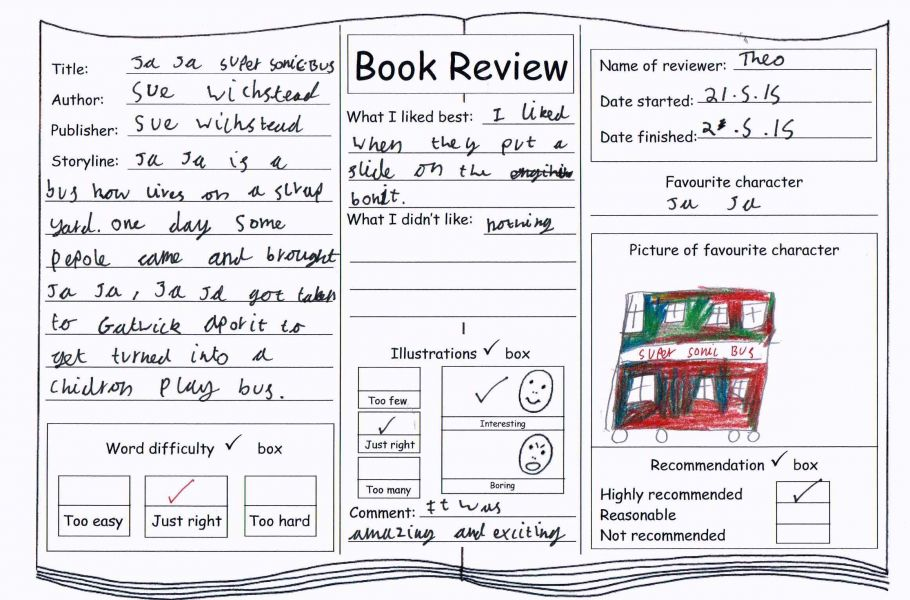 Title: Ja Ja super sonic Bus
Author: Sue Wichstead
Publisher: Sue Wichstead
Storyline: Ja Ja is a
bus how lives on a scrap
yard. one day some
pepole came and brought
Ja Ja, Ja Ja got taken
to Gatwick aporit to
get turned into a
chidron play bus.
Word difficulty ✓ box
Too easy
✓ Just right
Too hard
Book Review
What I liked best: I liked
when they put a
slide on the
bonit.
What I didn't like: nothing
Illustrations ✓ box
Too few
✓
Just right
Too many
✓
Interesting
Boring
Comment: It was
amazing and exciting
Name of reviewer: Theo
Date started: 21.5.15
Date finished: .5.15
Favourite character
Ja Ja
Picture of favourite character
SUPER SONIC BUS
Recommendation ✓ box
Highly recommended ✓
Reasonable
Not recommended